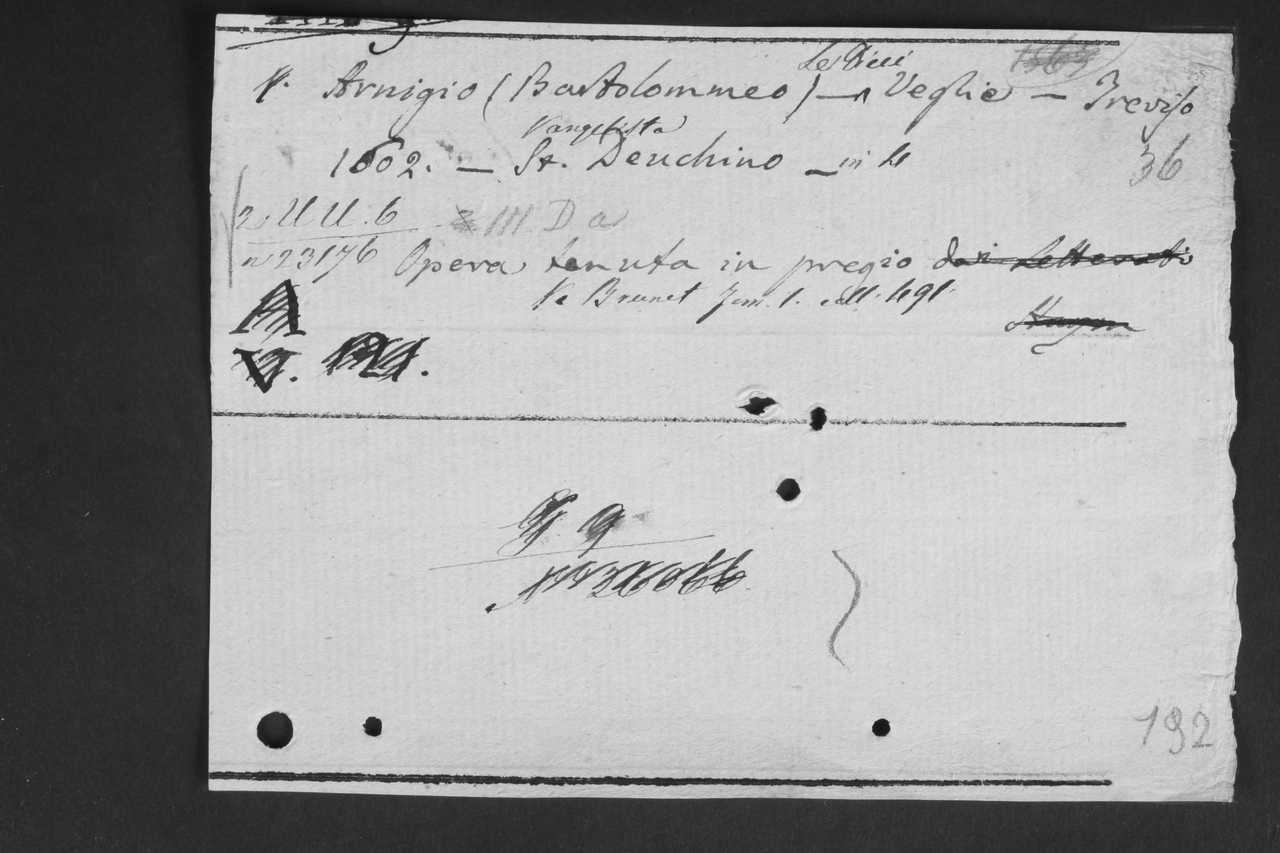 V. Arnigio (Bartolommeo) — Le Dieci Veglie — Treviso
1602. — St. Vangelista Deuchino — in 4
36
2 UU. 6 III D a
n 23176 Opera tenuta in pregio dai Letterati
Ve Brunet Tom. 1. coll. 491.
Haym
A
V.
192